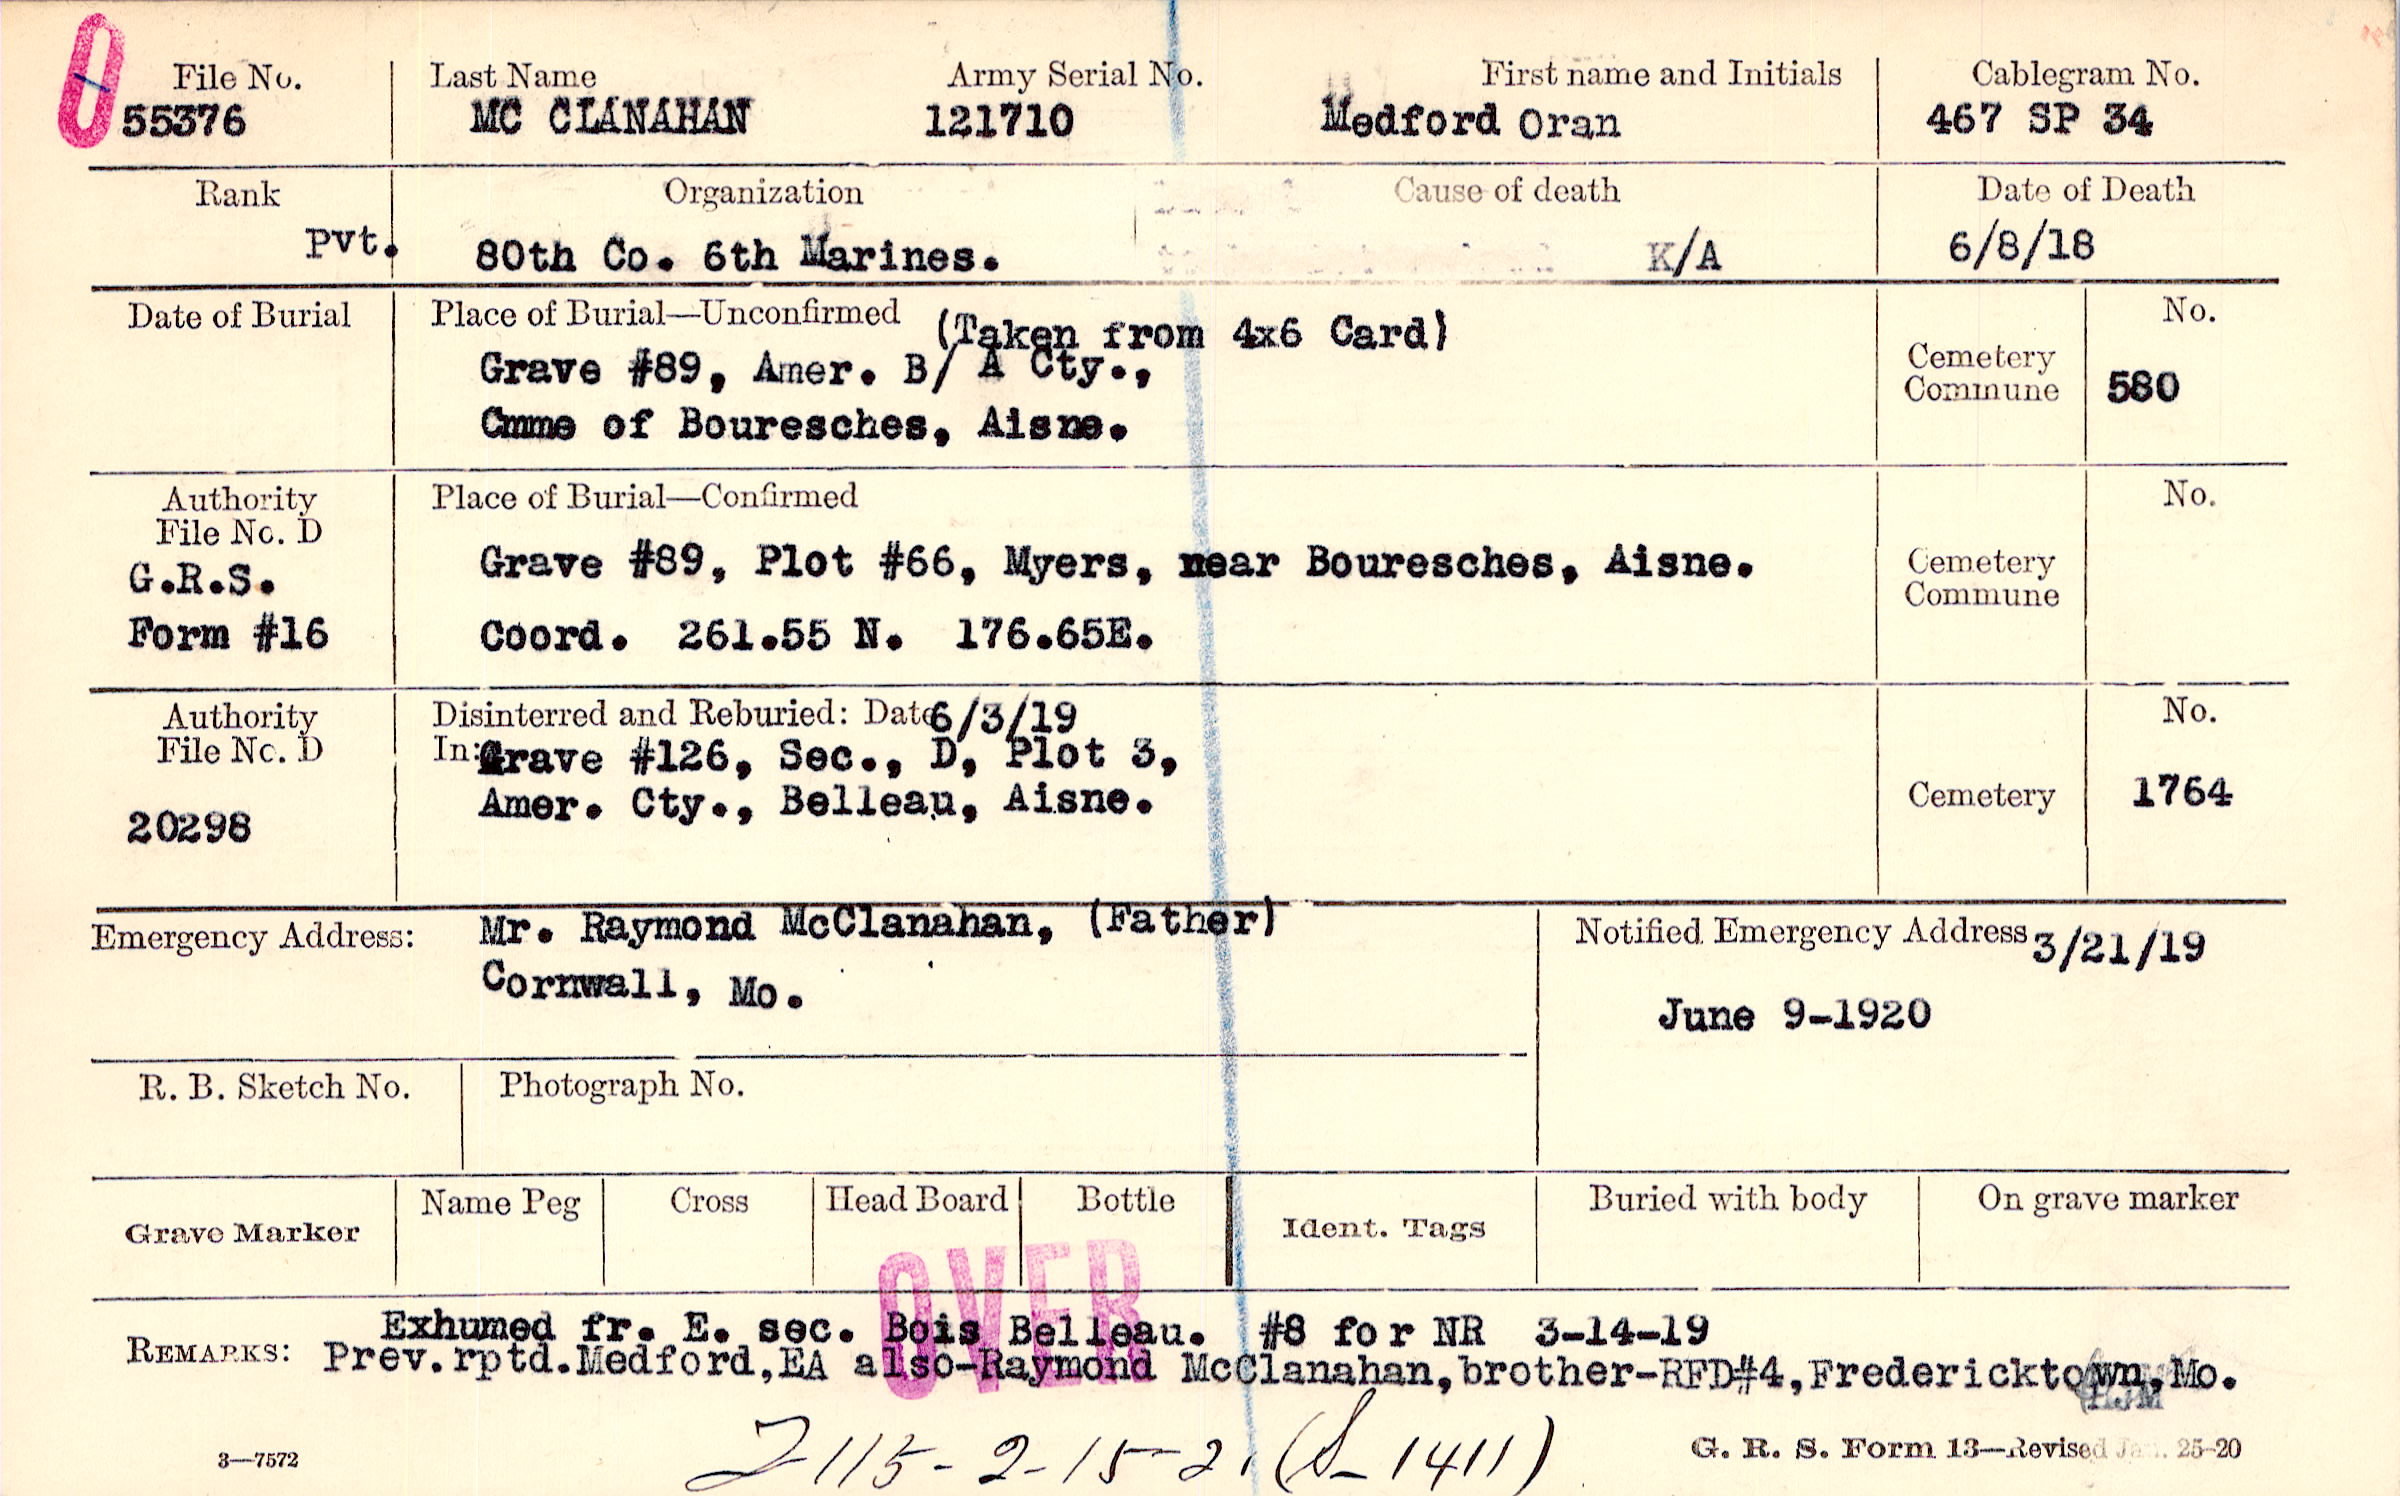 File No. Last Name Army Serial No. First name and Initials Cablegram No.
0 55376 MC CLANAHAN 121710 Medford Oran 467 SP 34
Rank Organization Cause of death Date of Death
Pvt. 80th Co. 6th Marines. K/A 6/8/18
Date of Burial Place of Burial—Unconfirmed (Taken from 4x6 Card) No.
Grave #89, Amer. B/ A Cty., Cemetery
Commune 580
Cmme of Bouresches, Aisne.
Authority Place of Burial—Confirmed No.
File No. D
G.R.S. Grave #89, Plot #66, Myers, near Bouresches, Aisne. Cemetery
Commune
Form #16 Coord. 261.55 N. 176.65E.
Authority Disinterred and Reburied: Date 6/3/19 No.
File No. D In: Grave #126, Sec., D, Plot 3,
Amer. Cty., Belleau, Aisne. Cemetery 1764
20298
Emergency Address: Mr. Raymond McClanahan, (Father) Notified Emergency Address 3/21/19
Cornwall, Mo.
June 9-1920
R. B. Sketch No. Photograph No.
Name Peg Cross Head Board Bottle Buried with body On grave marker
Grave Marker Ident. Tags
OVER
Exhumed fr. E. sec. Bois Belleau. #8 for NR 3-14-19
REMARKS: Prev.rptd.Medford,EA also-Raymond McClanahan,brother-RFD#4,Fredericktown,Mo.
2115-2-15-21 (S-1411)
3—7572 G. R. S. Form 13—Revised Jan. 25-20